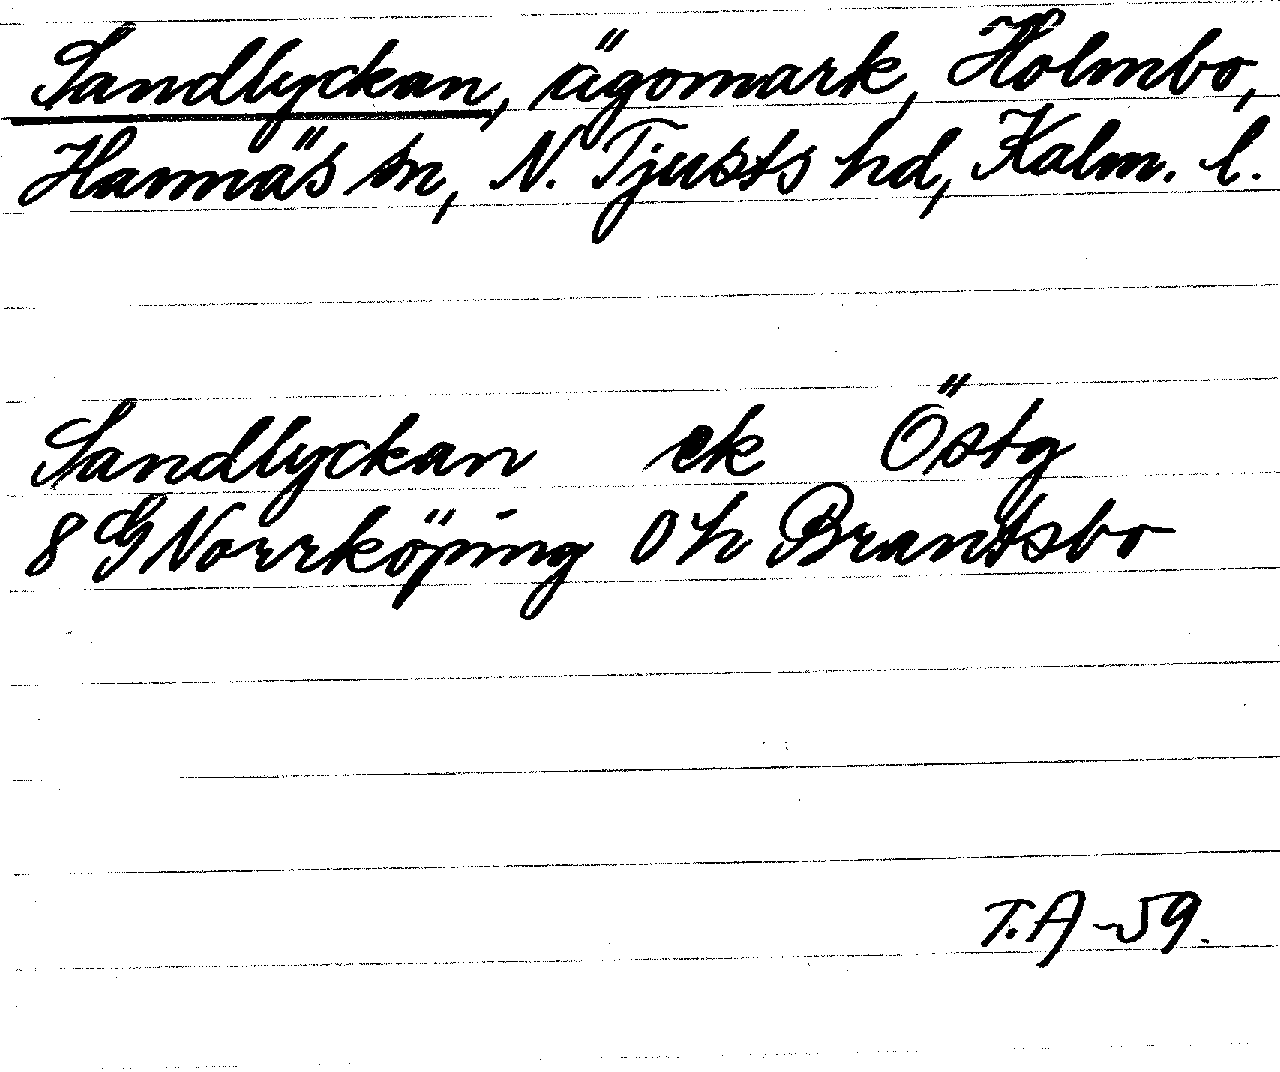 Sandlyckan, ägomark, Holmbo,
Hannäs sn, N. Tjusts hd, Kalm. l.
Sandlyckan ek Östg
8 G Norrköping 0 h Brantsbo
T.A -59.